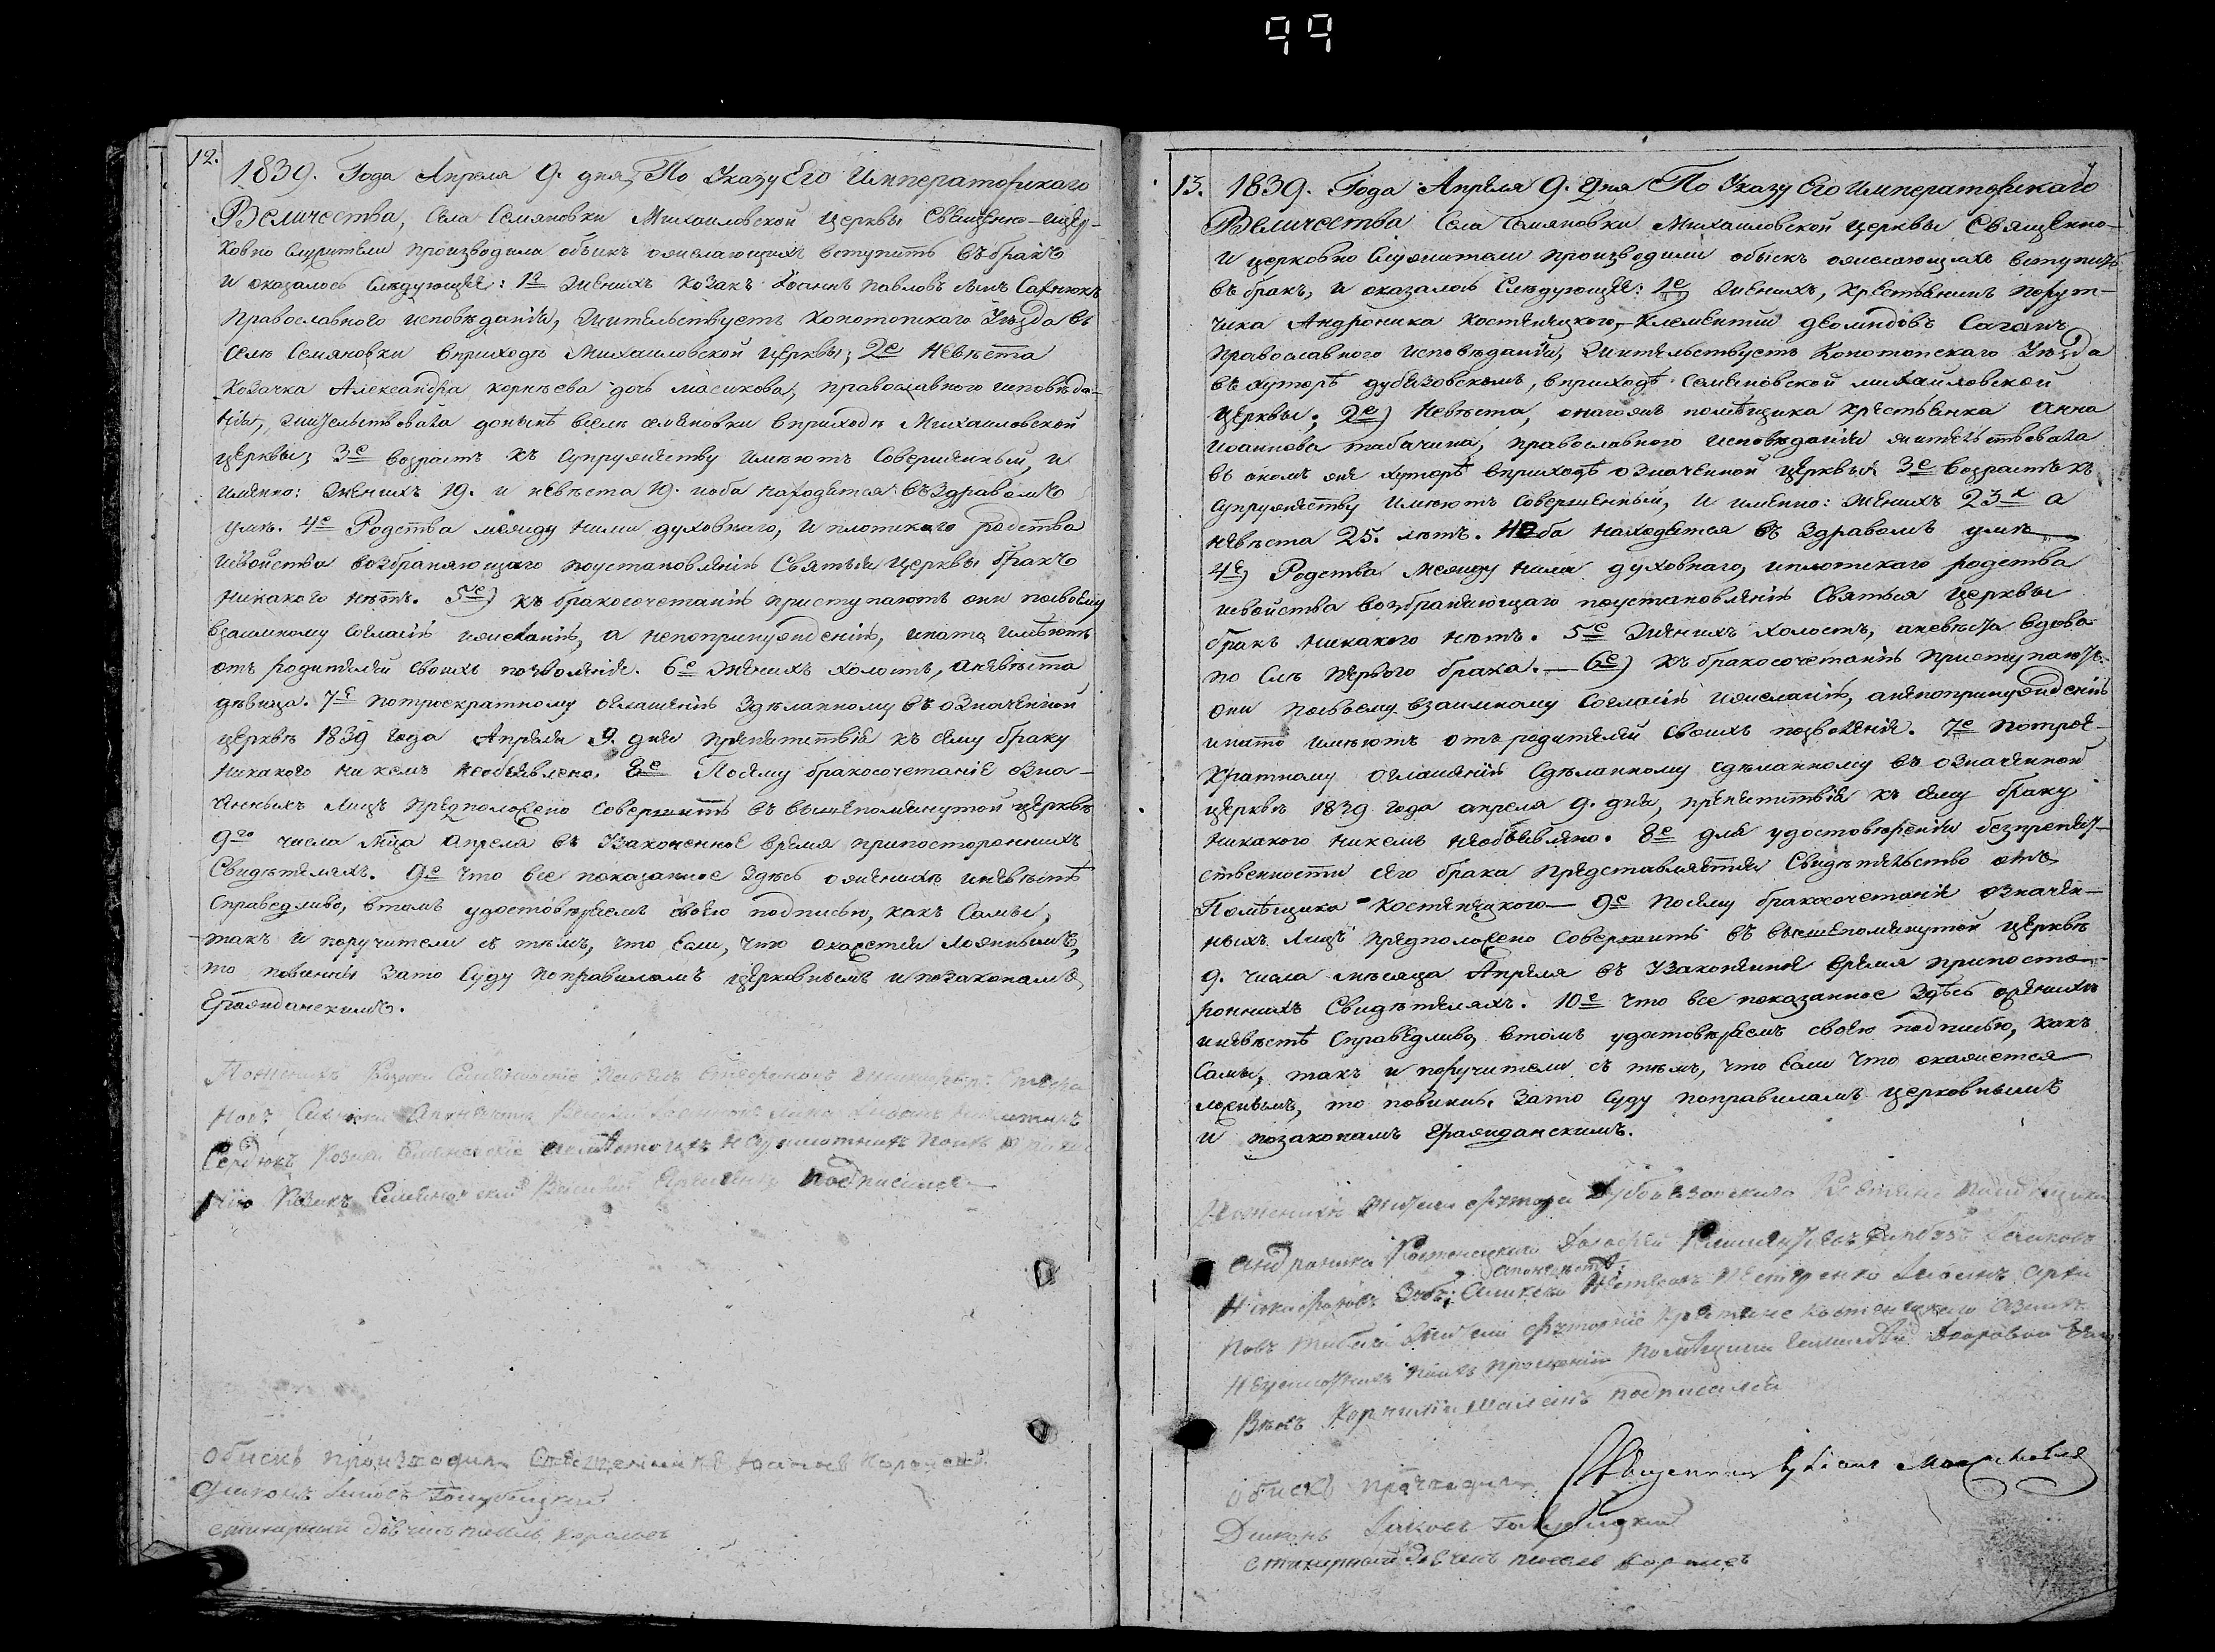 99
12.
1839. Года Апреля 9. дня, По Указу Его Императорскаго
Величества, Села Семяновки Михаиловской Церквы Священно-ицер-
ковно служители производила обыск ожелающихъ вступить въ бракъ
и оказалось следующѣе: 1е Женихъ Козакъ Иоаннъ Павловъ сынъ Сахнюкъ
Православного исповѣданія, Жительствуетъ Конотопскаго Уѣзда въ
Селѣ Семяновки вприходѣ Михаиловской Церквы; 2е Невѣста
Козачка Александра корнѣева дочь масикова, православного исповѣда-
нія, жительствовала донынѣ вселѣ семяновки вприходѣ Михаиловской
церквы; 3е возрастъ къ супружеству имѣютъ Совершенный, и
имянно: Женихъ 19. и невѣста 19. иоба находятся въ здравомъ
умѣ. 4е Родства между ними духовнаго, и плотскаго родства
исвойства возбраняющаго поустановленію Святыя Церквы бракъ
никакого нѣтъ. 5е) къ бракосочетанію приступаютъ они посвоему
взаимному согласію ижеланію, а непопринужденію, инато имѣютъ
отъ родителей своихъ позволеніе. 6е Женихъ холостъ, аневѣста
дѣвица. 7е Потроекратному оглашенію здѣланному въ означенной
церквѣ 1839 года Апреля 9. дня препятствія къ сему браку
никакого никемъ необъявлено. 8е Посему бракосочетаніе озна-
ченныхъ лицъ предположено совершить въ вышепомянутой церквѣ
9го числа мца апреля въ Узаконенное время припостороннихъ
Свидѣтеляхъ. 9е что все показанное здѣсь оженихѣ иневѣстѣ
Справедливо, втомъ удостовѣряемъ своею подписью, какъ Самы,
такъ и поручители съ тѣмъ, что Если, что окажется ложнымъ,
то повинны зато Суду поправиламъ церковнымъ ипозаконамъ
Гражданскимъ.
Сердюкъ козаки
подписался
Обискъ производили Священникъ Иоаннъ
Диаконъ Яковъ Голубицкий
13. 1839. Года Апреля 9. Дня По Указу Его Императорскаго
Величества Села Семяновки Михаиловской церквы Священно-
и церковно Служители производили обыскъ ожелающихъ вступить
въ бракъ, и оказалось Следующѣе: 1е) Женихъ, Крестьянинъ Порут-
чика Андроника Костенецкого, Клементий Диомидовъ Саганъ
Православного исповѣданія, Жительствуетъ Конотопскаго Уѣзда
въ хуторѣ дубязовскомъ, вприходѣ Семяновской михайловской
церквы; 2е) Невѣста, онагожъ помѣщика крестьянка Анна
Иоаннова табачина, православного исповѣданія жительствовала
въ ономъ же хуторѣ вприходѣ означенной церквы. 3е возрастъ къ
супружеству имѣютъ совершенный, и имянно: Женихъ 23х а
невѣста 25. лѣтъ. Иоба находятся въ здравомъ умѣ
4е) Родства между ними духовнаго, иплотскаго родства
исвойства возбраняющаго поустановленію Святыя церквы
бракъ никакого нѣтъ. 5е Женихъ холостъ, аневѣста вдова
по слѣ первого брака. — 6е) къ бракосочетанію приступаютъ
они посвоему взаимному согласію ижеланію, анепопринужденію
инато имѣютъ отъ родителей своихъ позволеніе. 7е Потрое-
кратному оглашенію сдѣланному сдѣланному въ означенной
церквѣ 1839 года апреля 9. дня, препятствія къ сему браку
никакого никемъ необъявлено. 8е для удостовѣренія безпрепят-
ственности сего брака представляется Свидѣтельство отъ
Помѣщика Костенецкого — 9е Посему бракосочетаніе означен-
ныхъ Лицъ предположено совершить въ вышепомянутой церквѣ
9. числа мѣсяца Апреля въ Узаконенное время припосто-
роннихъ Свидѣтеляхъ. 10е что все показанное здѣсь оженихѣ
иневѣстѣ Справедливо, втомъ удостовѣряемъ своею подписью, какъ
Самы, такъ и поручители съ тѣмъ, что Если что окажется
ложнымъ, то повинны зато Суду поправиламъ церковнымъ
и позаконамъ Гражданскимъ.
Андроника Костенецкого
подписался
Обискъ производили Священникъ
Диаконъ Яковъ Голубицкий